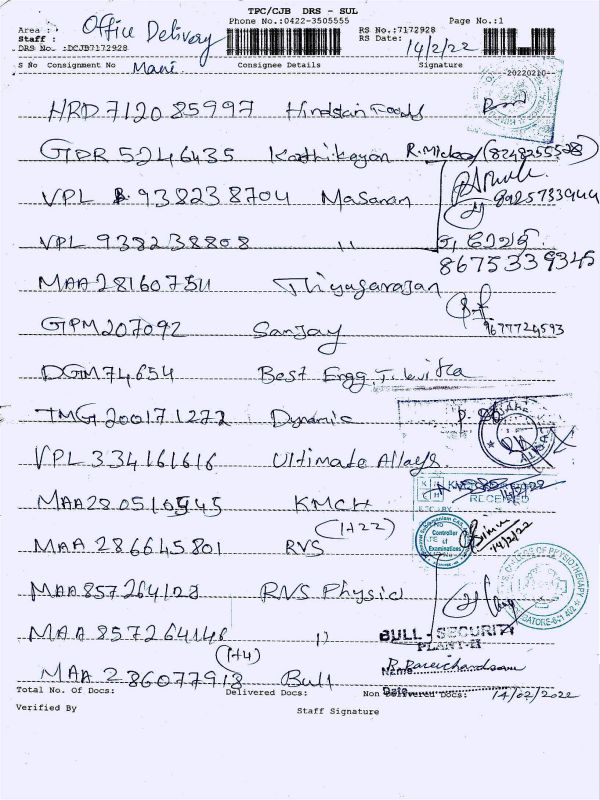 TPC/CJB DRS - SUL
Phone No.:0422-3505555 Page No.:1
Area : Office Delivery RS No.:7172928
Staff : RS Date: 14/2/22
DRS No :DCJB7172928
S No Consignment No Mani Consignee Details Signature
20220210
HRD 712085997 Hindstan Foods
GDR 5246435 Kathikayan
VPL 938238704 Masanan
VPL 938238808 ,,
8675339345
MAA 281607511 Thiyagarajan
GPM207092 Sanjay
9677724593
DGM74654 Best Engg.
TMG 200171272 Dynamic
VPL 334161616 Ultimate Alloys.
RECEIVED
KMCH
(1+22)
Controller of Examinations
14/2/22
MAA 286645801 RVS
MAA 857264128 RVS Physio
MAA 857264146 ,,
BULL - SECURITY
PLANT-II
(1+4)
MAA 286077918 Bull
Name
Date 14/02/2022
Total No. Of Docs: Delivered Docs: Non Delivered Docs:
Verified By Staff Signature